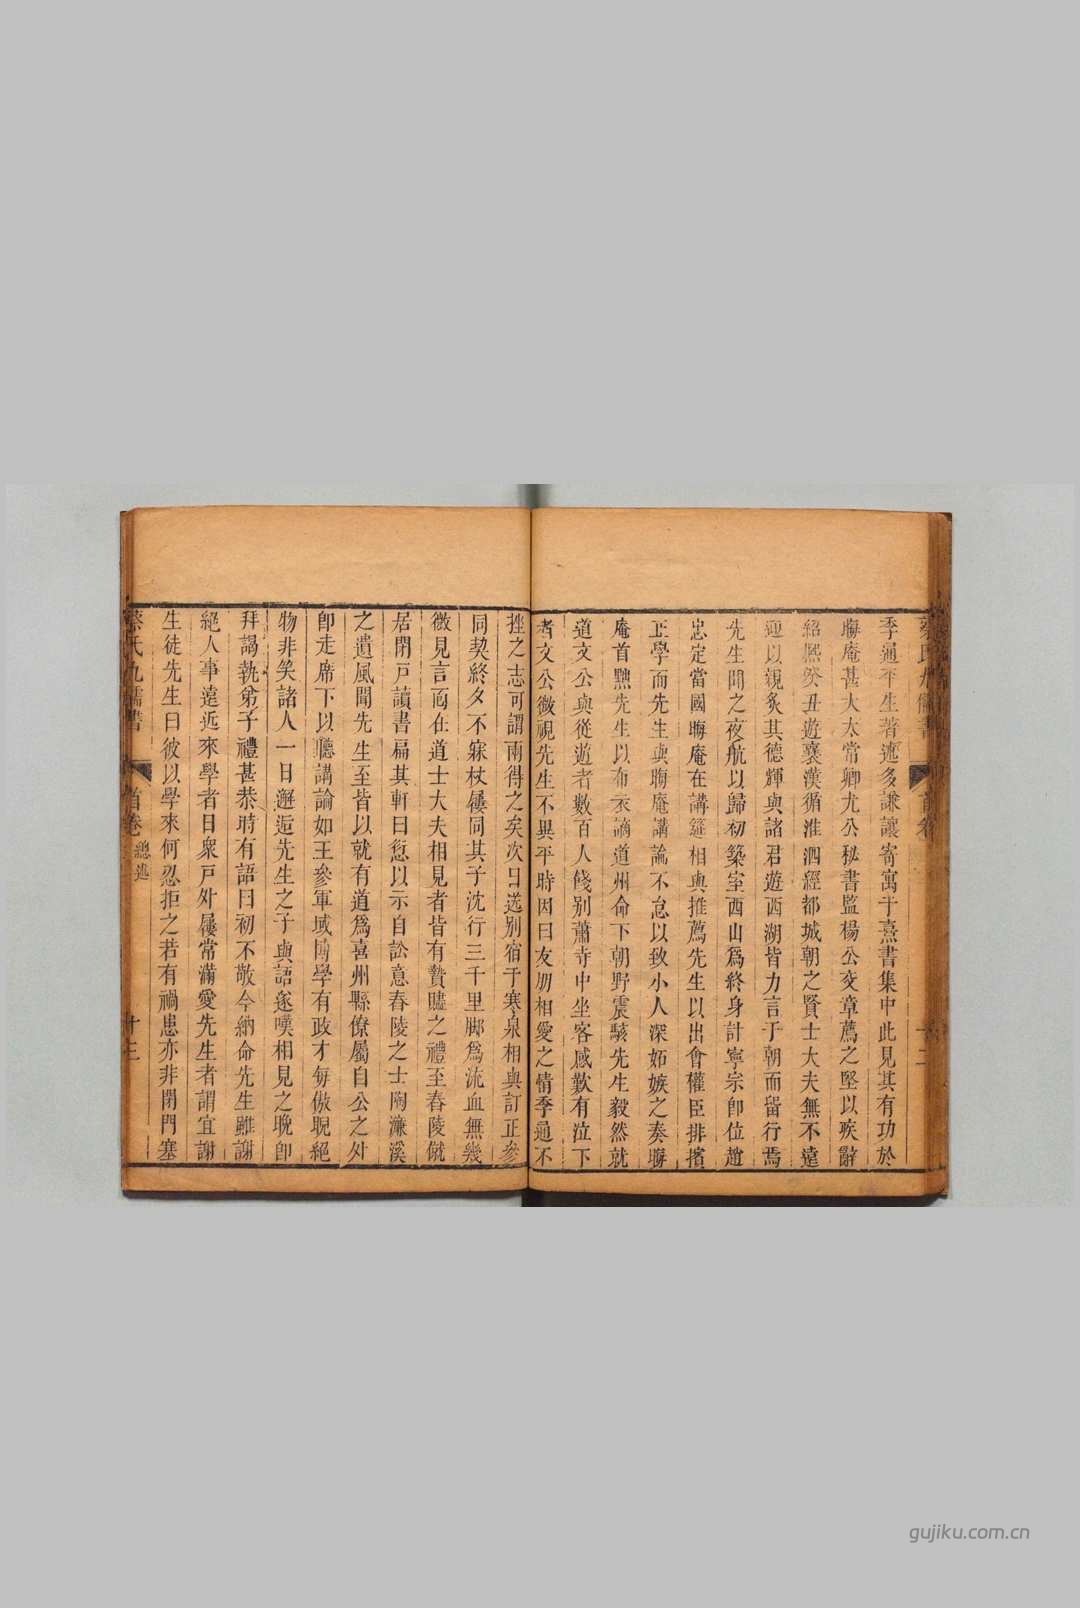 季通平生著述多謙讓寄寓于熹書集中此見其有功於
晦庵甚大太常卿尤公秘書監楊公交章薦之堅以疾辭
紹熙癸丑遊襄漢循淮泗經都城朝之賢士大夫無不遠
迎以親炙其德輝與諸君遊西湖皆力言于朝而留行焉
先生聞之夜航以歸初築室西山爲終身計寧宗即位趙
忠定當國晦庵在講筵相與推薦先生以出會權臣排擯
正學而先生與晦庵講論不怠以致小人深妬嫉之奏晦
庵首黜先生以布衣謫道州命下朝野震駭先生毅然就
道文公與從遊者數百人餞別蕭寺中坐客感歎有泣下
者文公微視先生不異平時因曰友朋相愛之情季通不
挫之志可謂兩得之矣次日送別宿于寒泉相與訂正參
同契終夕不寐杖屨同其子沈行三千里脚爲流血無幾
微見言面在道士大夫相見者皆有贄贐之禮至舂陵僦
居閉戸讀書扁其軒曰愆以示自訟意舂陵之士陶濂溪
之遺風聞先生至皆以就有道爲喜州縣僚屬自公之外
卽走席下以聽講論如王參軍或國學有政才每傲睨絕
物非笑諸人一日邂逅先生之子與語遂嘆相見之晚卽
拜謁執弟子禮甚恭時有語曰初不敬今納命先生雖謝
絕人事遠近來學者日衆戸外屨常滿愛先生者謂宜謝
生徒先生曰彼以學來何忍拒之若有禍患亦非閉門塞
蔡氏九儒書 首卷 總述 十三
gujiku.com.cn